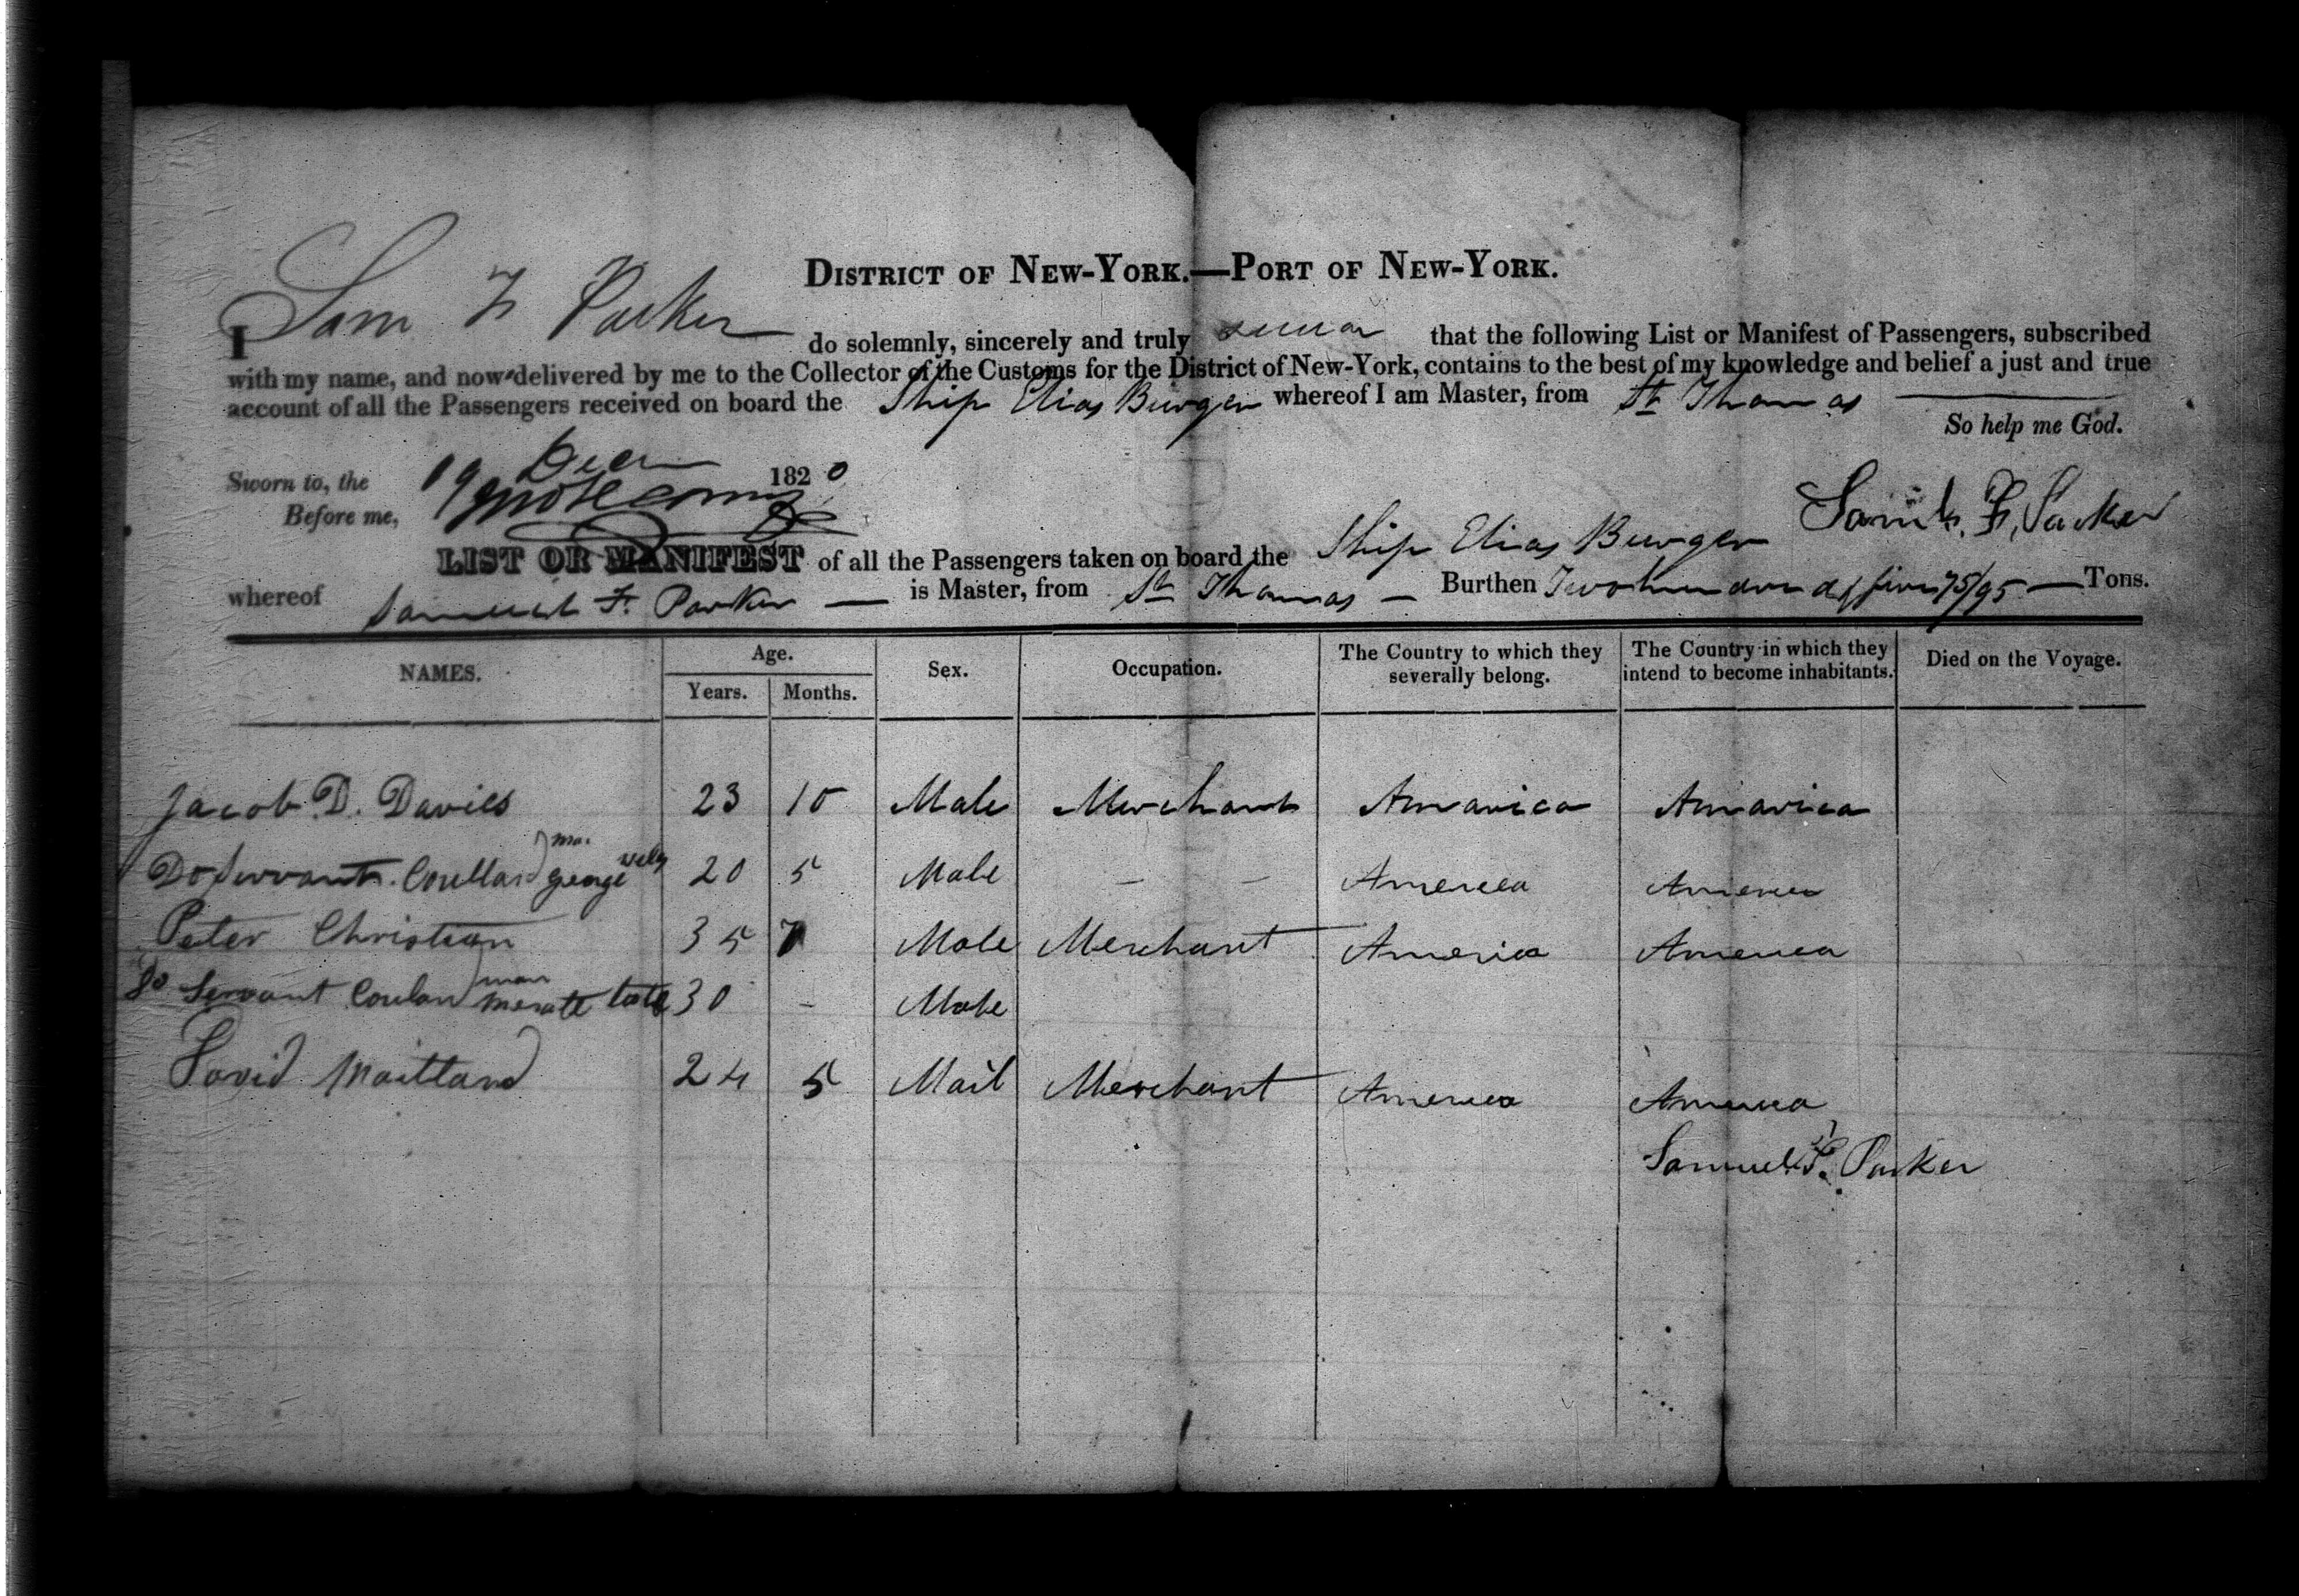 DISTRICT OF NEW-YORK.—PORT OF NEW-YORK.
I Sam F Parker do solemnly, sincerely and truly swear that the following List or Manifest of Passengers, subscribed
with my name, and now delivered by me to the Collector of the Customs for the District of New-York, contains to the best of my knowledge and belief a just and true
account of all the Passengers received on board the Ship Elias Burger whereof I am Master, from St Thomas
So help me God.
Sworn to, the 19 Decr 1820
Before me,
Saml. F. Parker
LIST OR MANIFEST of all the Passengers taken on board the Ship Elias Burger
whereof Samuel F. Parker — is Master, from St Thomas — Burthen Two hundred & five 75/95 — Tons.
NAMES. Age. Sex. Occupation. The Country to which they severally belong. The Country in which they intend to become inhabitants. Died on the Voyage.
Years. Months.
Jacob D. Davies 23 10 Male Merchant Amarica Amarica
Do Servant George 20 5 Male — — America America
Peter Christian 35 7 Male Merchant America America
Do Servant man 30 - Male
David Maitland 24 5 Mail Merchant America America
Samuel F. Parker